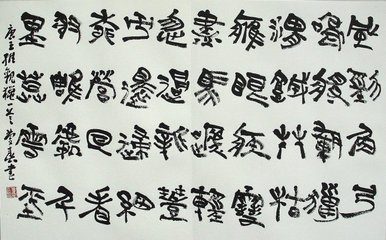 風勁角弓
鳴將軍獵
渭城草枯
鷹眼疾雪
盡馬蹄輕
忽過新豐
市還歸細
柳營回看
射雕處千
里暮雲平
唐王維觀獵一首